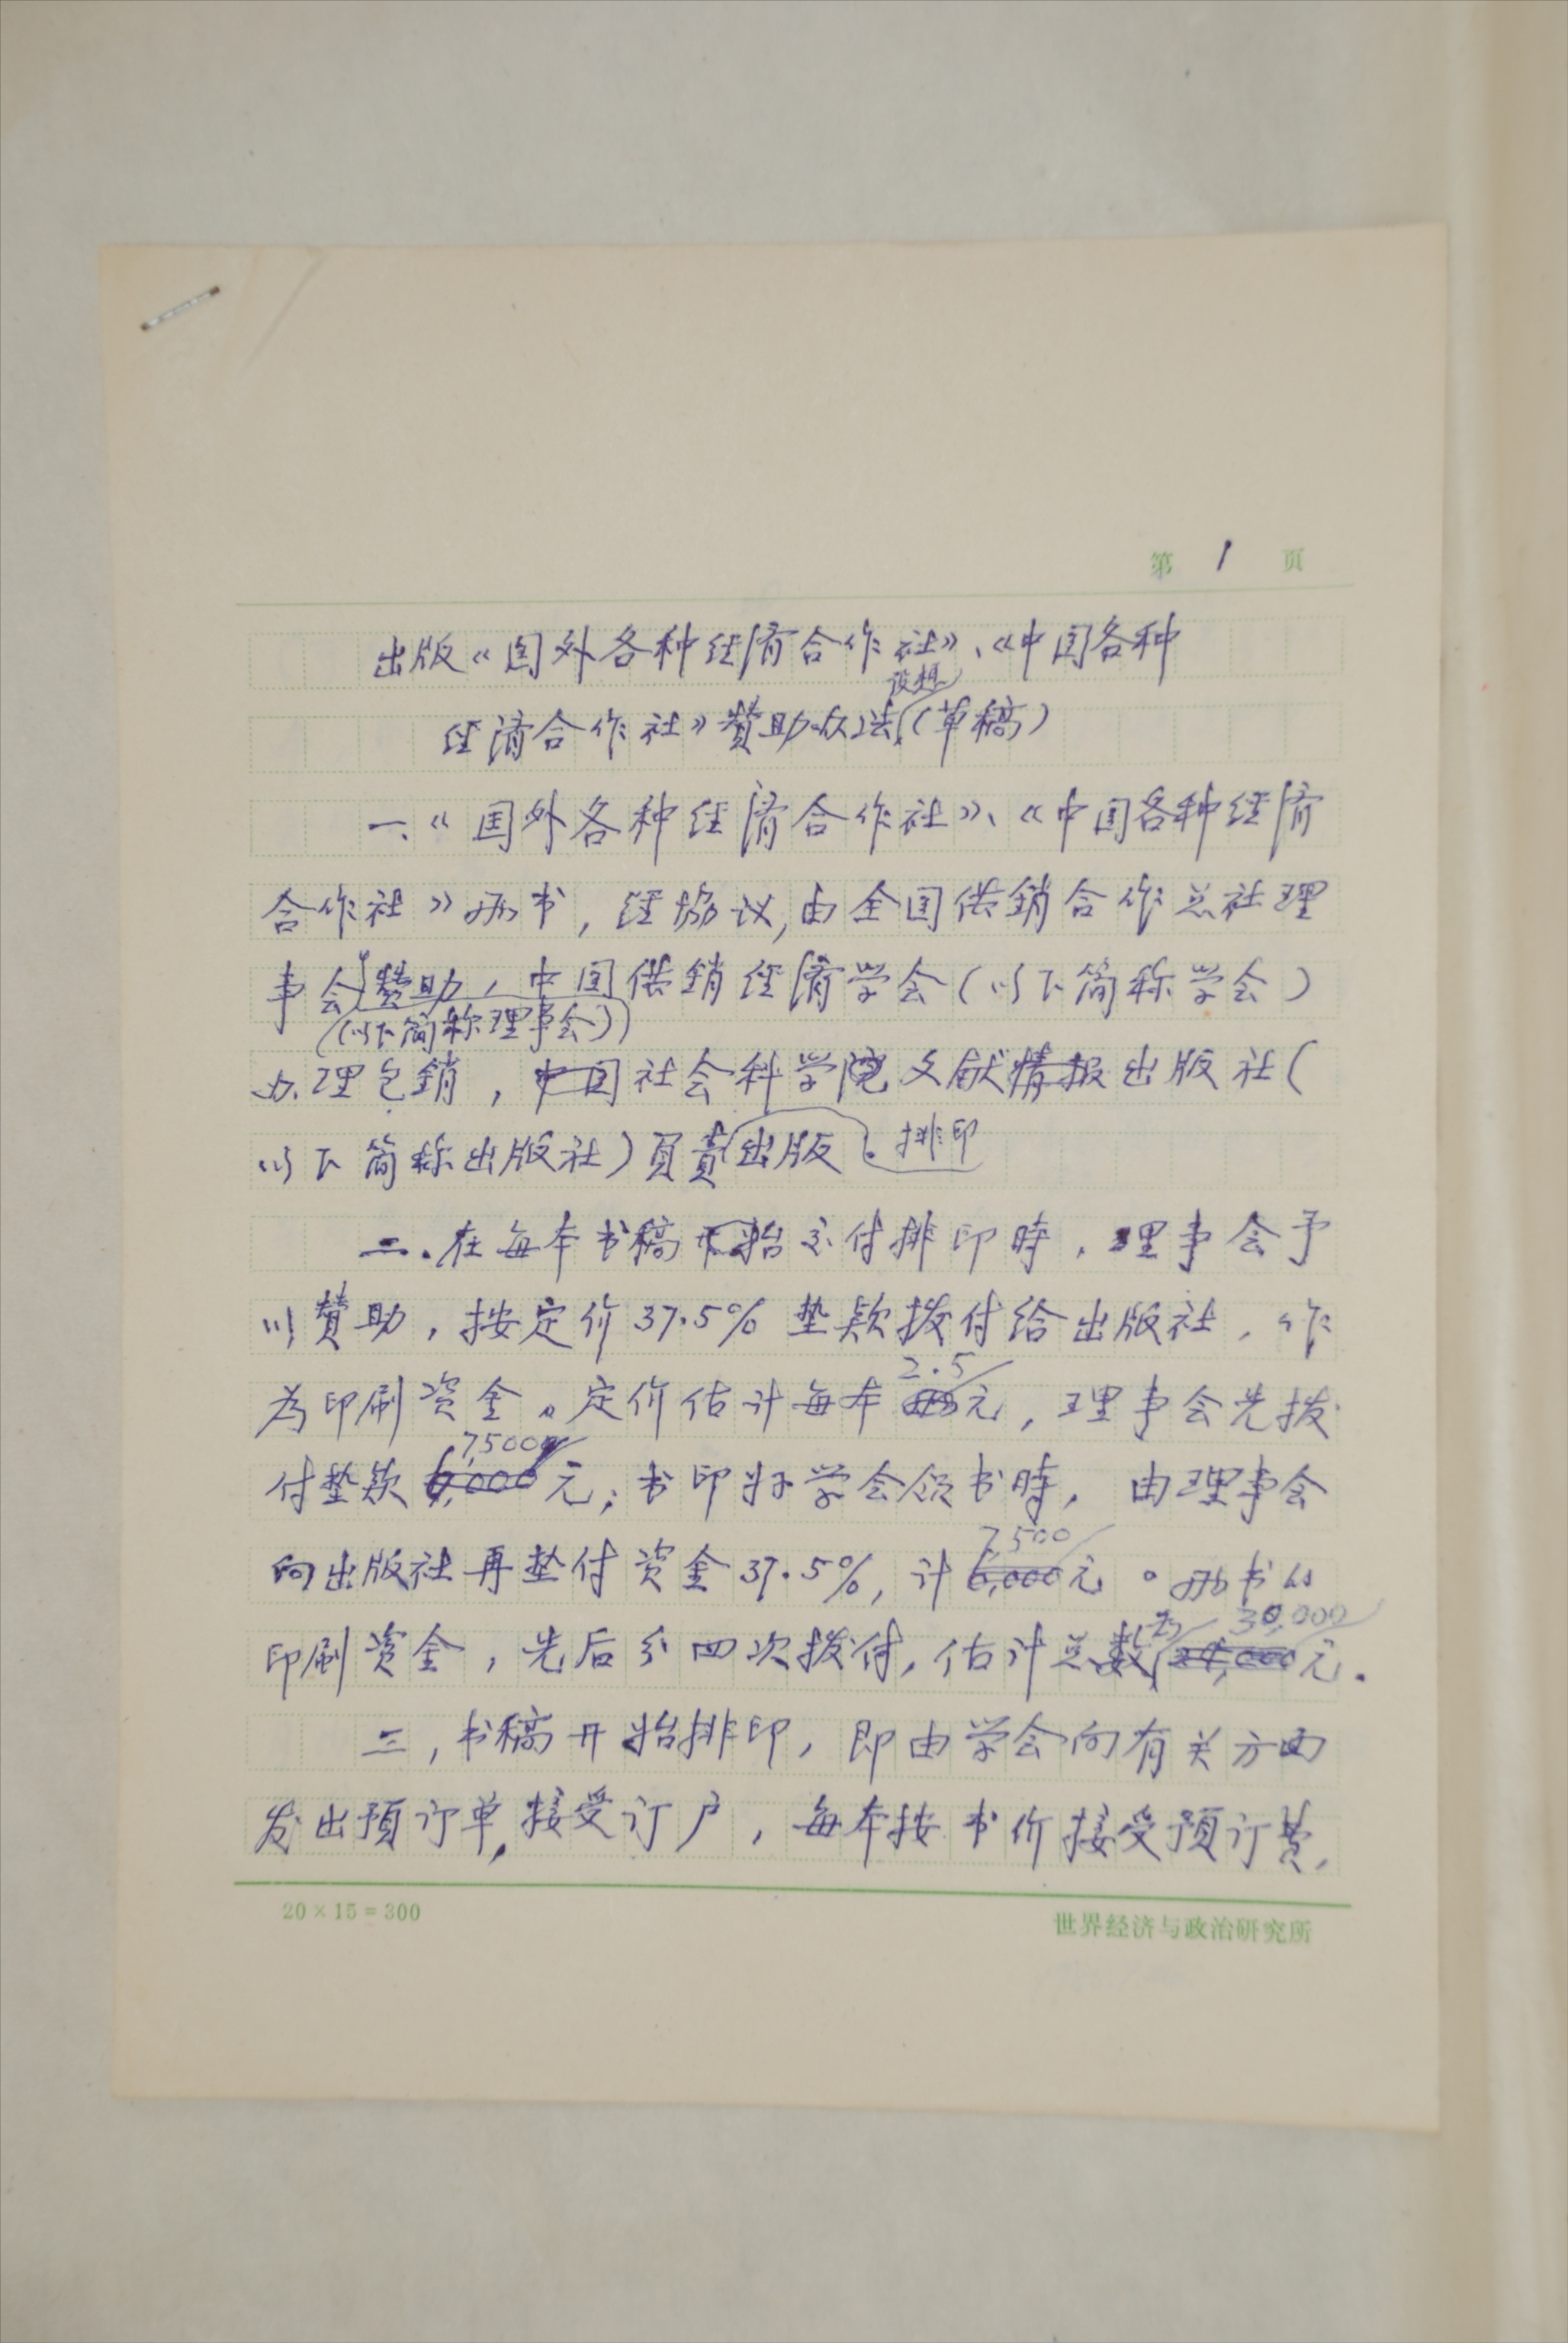 第 1 页
出版《国外各种经济合作社》、《中国各种
设想
经济合作社》赞助办法(草稿)
一、《国外各种经济合作社》、《中国各种经济
合作社》两书,经协议,由全国供销合作总社理
事会赞助,中国供销经济学会(以下简称学会)
(以下简称理事会)
办理包销,中国社会科学院文献情报出版社(
以下简称出版社)负责出版、排印
二、在每本书稿开始交付排印时,理事会予
以赞助,按定价37.5%垫款拨付给出版社,作
2.5
为印刷资金。定价估计每本元,理事会先拨
7,500
付垫款6,000元;书印好学会领书时,由理事会
7,500
向出版社再垫付资金37.5%,计6,000元。两书的
为 30,000
印刷资金,先后分四次拨付,估计总数24,000元.
三,书稿开始排印,即由学会向有关方面
发出预订单,接受订户,每本按书价接受预订费,
20×15=300
世界经济与政治研究所